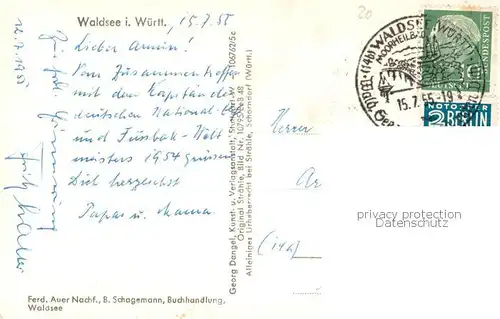 Waldsee i. Württ.
15.7.55
Lieber Armin!
Vom Zusammentreffen
mit dem Kapitän der
deutschen National-
und Fussball-Welt
meisters 1954 grüssen
Dich herzlichst
Papa u. Mama.
12.7.1955
Fritz Walter
Ferd. Auer Nachf., B. Schagemann, Buchhandlung,
Waldsee
Georg Dangel, Kunst- u. Verlagsanstalt, Stuttgart-W
Original Strähle, Bild Nr. 10795
Alleiniges Urheberrecht bei Strähle, Schorndorf (Württ.)
20
(14b) WALDSEE (WÜRTT)
MOORHEILBAD
15.7.55.-19
10
DEUTSCHE BUNDESPOST
NOTOPFER
2 BERLIN
STEUERMARKE
Herrn
Ar
(14a)
privacy protection
Datenschutz